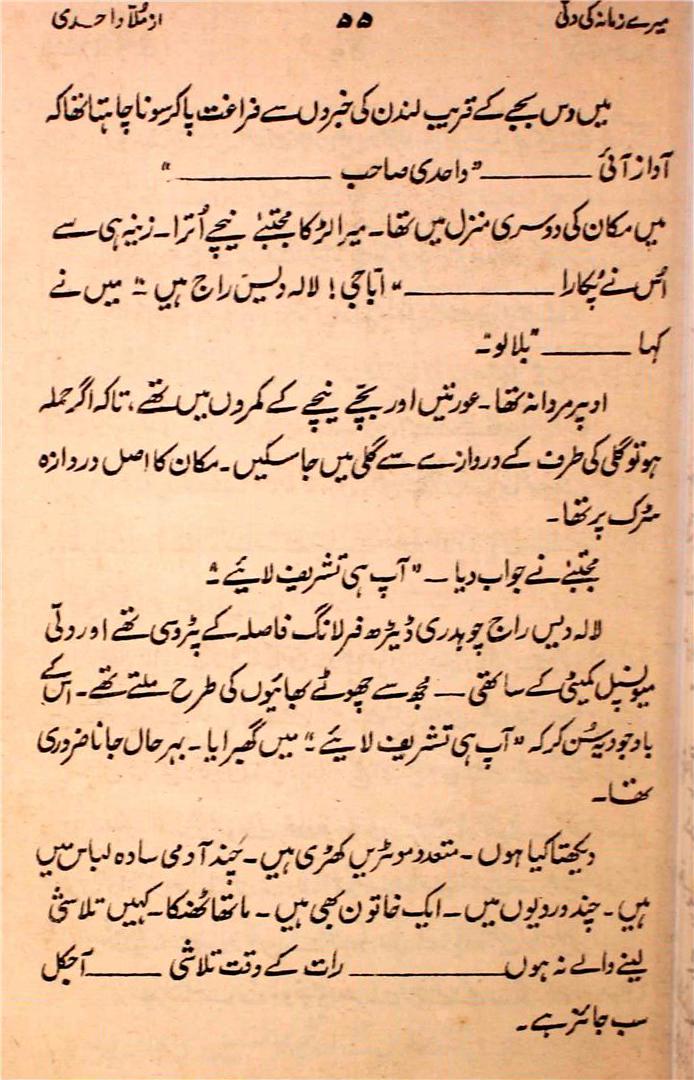 میرے زمانہ کی دلّی ۵۵ از مُلّا واحدی
میں دس بجے کے قریب لندن کی خبروں سے فراغت پاکر سونا چاہتا تھا کہ
آواز آئی ــــــــ "واحدی صاحب ــــــــــــ"
میں مکان کی دوسری منزل میں تھا۔ میرا لڑکا مجتبےٰ نیچے اُترا۔ زینہ ہی سے
اُس نے پُکارا ــــــــــــ "اباجی! لالہ دیس راج ہیں"۔ میں نے
کہا ــــــــ "بلالو"۔
اوپر مردانہ تھا۔ عورتیں اور بچّے نیچے کے کمروں میں تھے، تاکہ اگر حملہ
ہو تو گلی کی طرف کے دروازے سے گلی میں جا سکیں۔ مکان کا اصل دروازہ
سڑک پر تھا۔
مجتبےٰ نے جواب دیا ــ "آپ ہی تشریف لائیے"۔
لالہ دیس راج چوہدری ڈیڑھ فرلانگ فاصلہ کے پڑوسی تھے اور دلّی
میونسپل کمیٹی کے ساتھی ــ مُجھ سے چھوٹے بھائیوں کی طرح ملتے تھے۔ اس کے
باوجود یہ سُن کر کہ "آپ ہی تشریف لایئے"۔ میں گھبرایا۔ بہرحال جانا ضروری
تھا۔
دیکھتا کیا ہوں۔ متعدد موٹریں کھڑی ہیں۔ چند آدمی سادہ لباس میں
ہیں۔ چند وردیوں میں۔ ایک خاتون بھی ہیں۔ ماتھا ٹھنکا۔ کہیں تلاشی
لینے والے نہ ہوں ــــــــــــ رات کے وقت تلاشی ــــــــ آجکل
سب جائز ہے۔